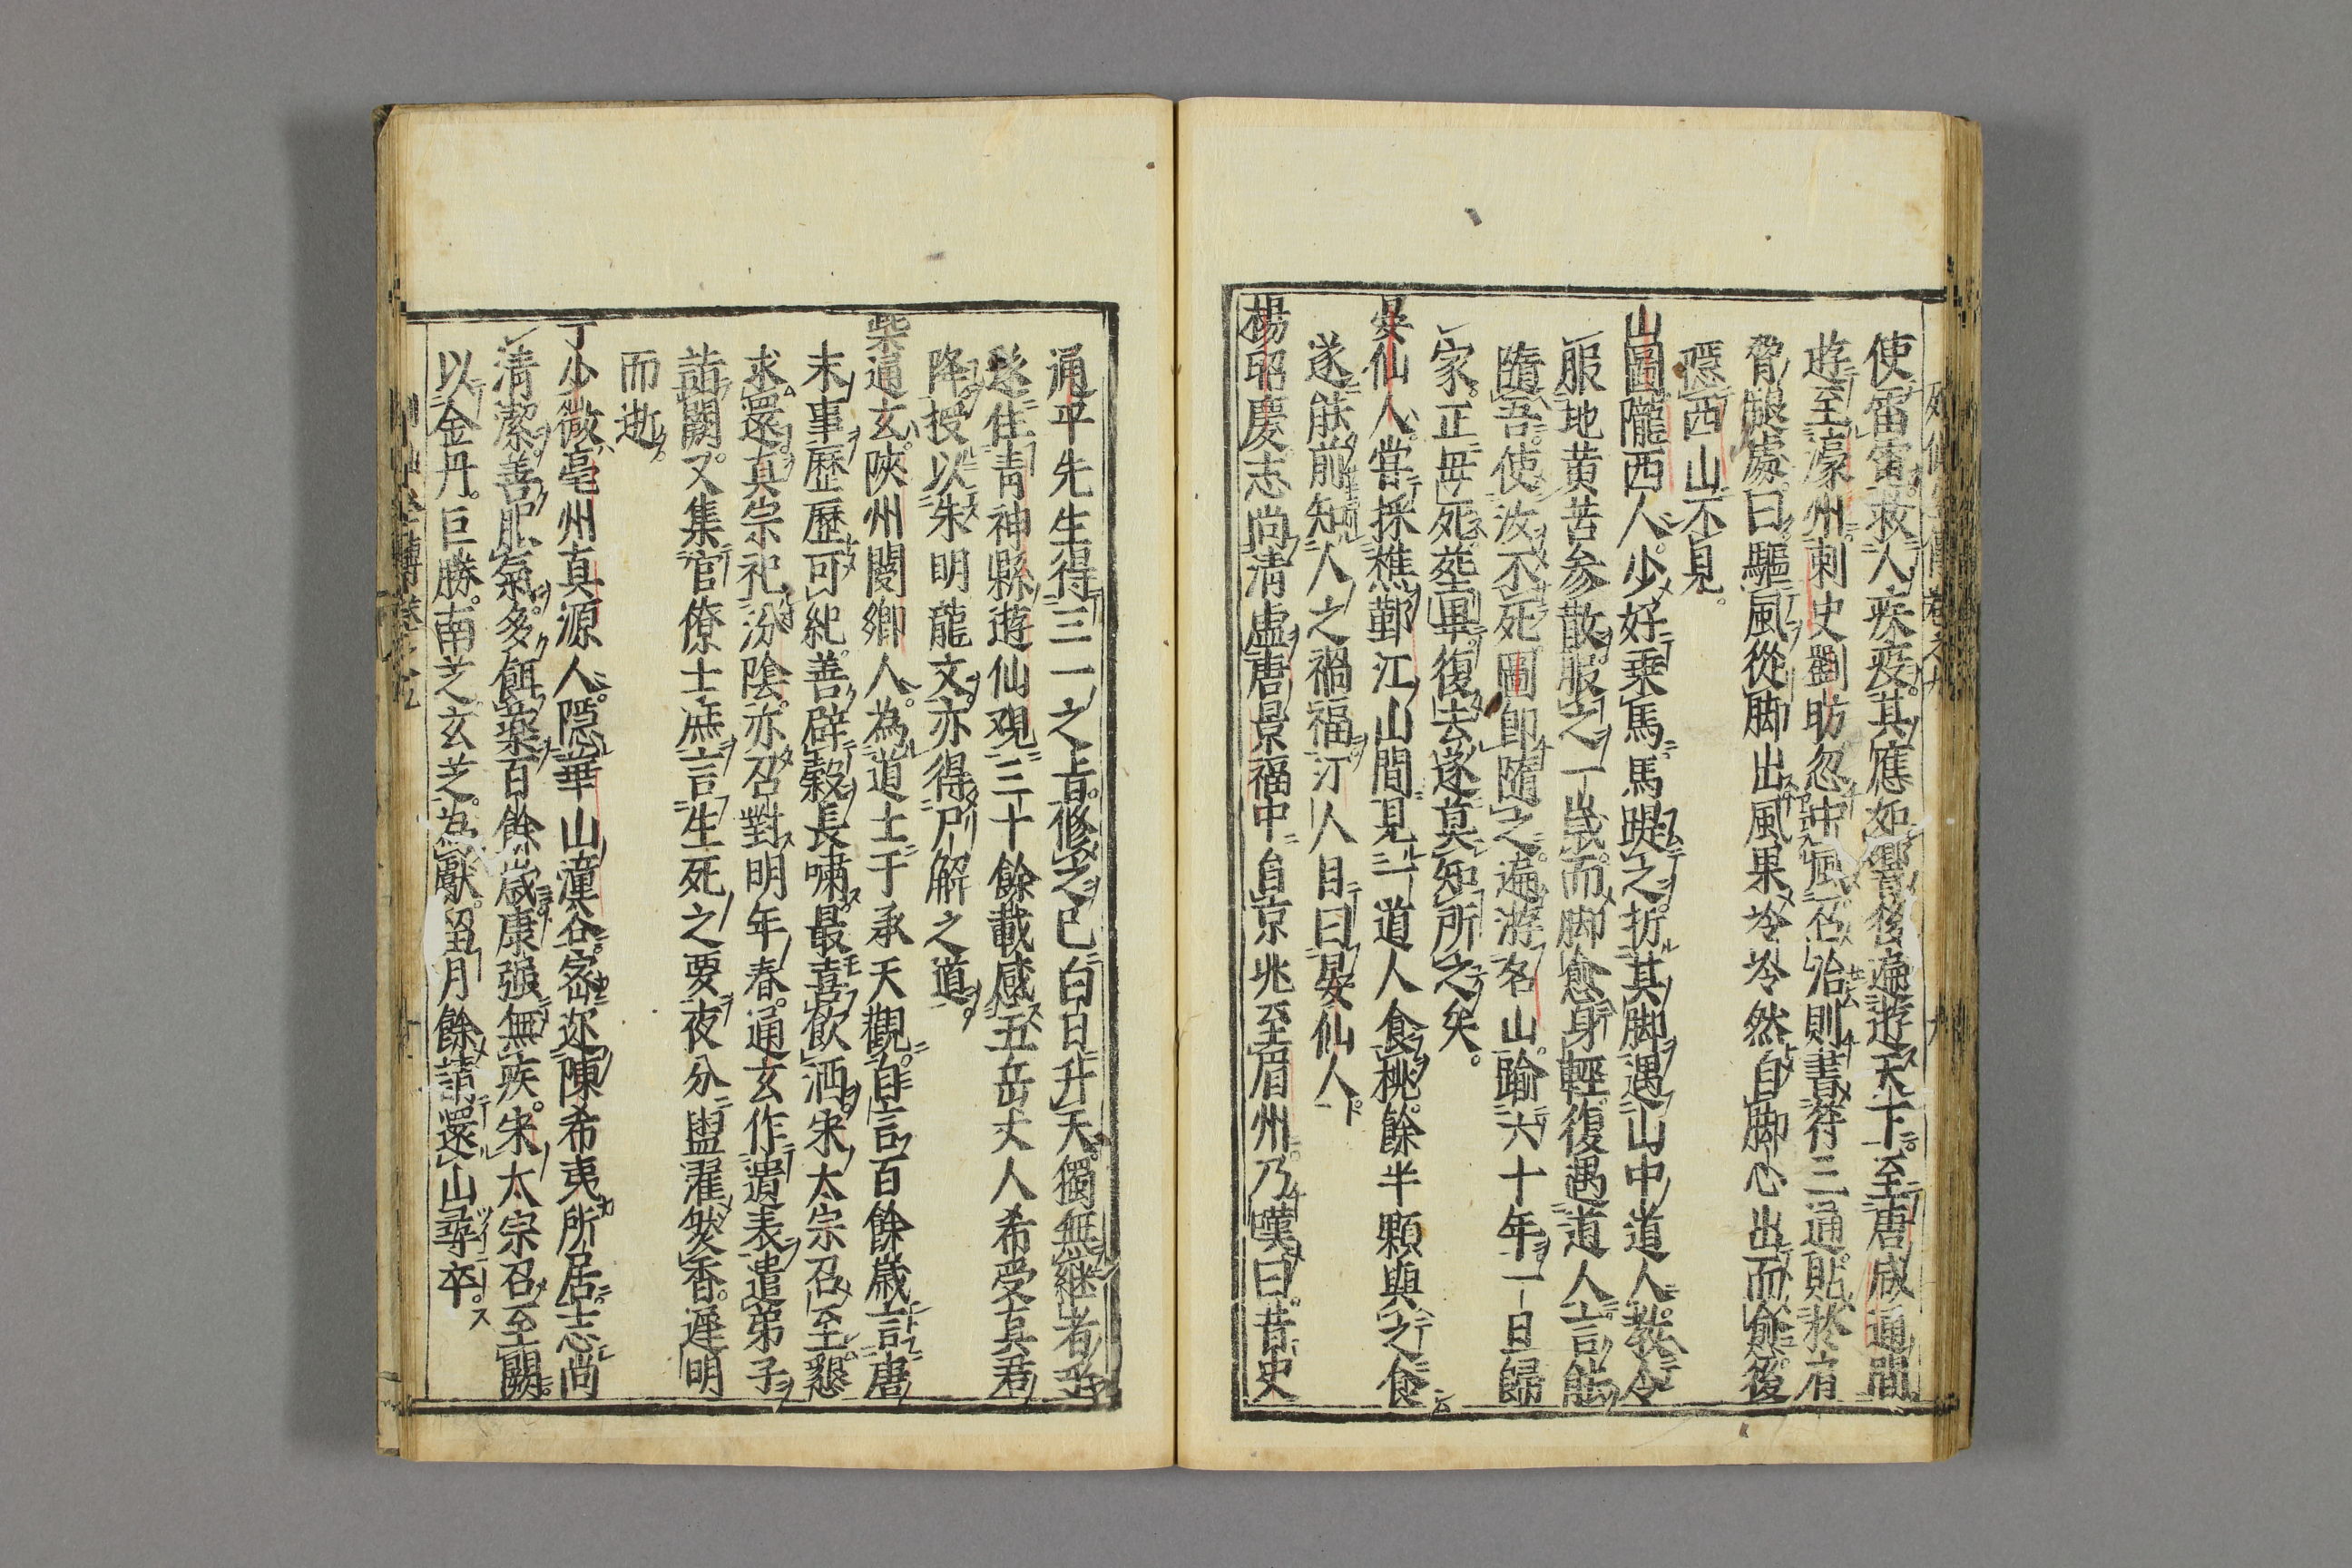 使雷電。救人疾疫。其應如響。後遍遊天下。至唐咸通間
遊至濠州。刺史劉昉忽中風。召治。則書符三通。貼於肩
脅腿處。曰驅風從脚出。風果冷冷然自脚心出而愈。後
隱西山不見。
山圖隴西人。少好乗馬。馬踶之。折其脚。遇山中道人。教令
服地黄苦参散。服之一歲。而脚愈身輕。復遇道人。言能
隨吾。使汝不死。圖即隨之。遍游名山。踰六十年。一旦歸
家。正母死。葬畢復去。遂莫知所之矣。
晏仙人。嘗採樵鄞江山間。見一道人食桃。餘半顆與之食
遂能前知人之禍福。汀人目曰晏仙人。
楊昭慶。志尚清虚。唐景福中。自京兆至眉州。乃嘆曰。昔史
通平先生得三一之旨。修之已白日升天。獨無継者乎
遂住青神縣遊仙观三十餘載。感五岳丈人希受真君
降。授以朱明龍文。亦得尸解之道。
柴通玄。陜州閿鄉人。為道士于承天觀。自言百餘歲。言唐
末事歷歷可紀。善辟穀長嘯。最喜飲酒。宋太宗召至。懇
求還。真宗祀汾陰。亦召對。明年春。通玄作遺表。遣弟子
詣闕。又集官僚士庶。言生死之要。夜分盥濯。焚香。遲明
而逝。
丁少微。亳州真源人。隱華山潼谷。密邇陳希夷所居。志尚
清潔。善服氣。多餌藥。百餘歲。康强無疾。宋太宗召至闕。
以金丹。巨勝。南芝。玄芝。為獻。留月餘。請還山。尋卒。